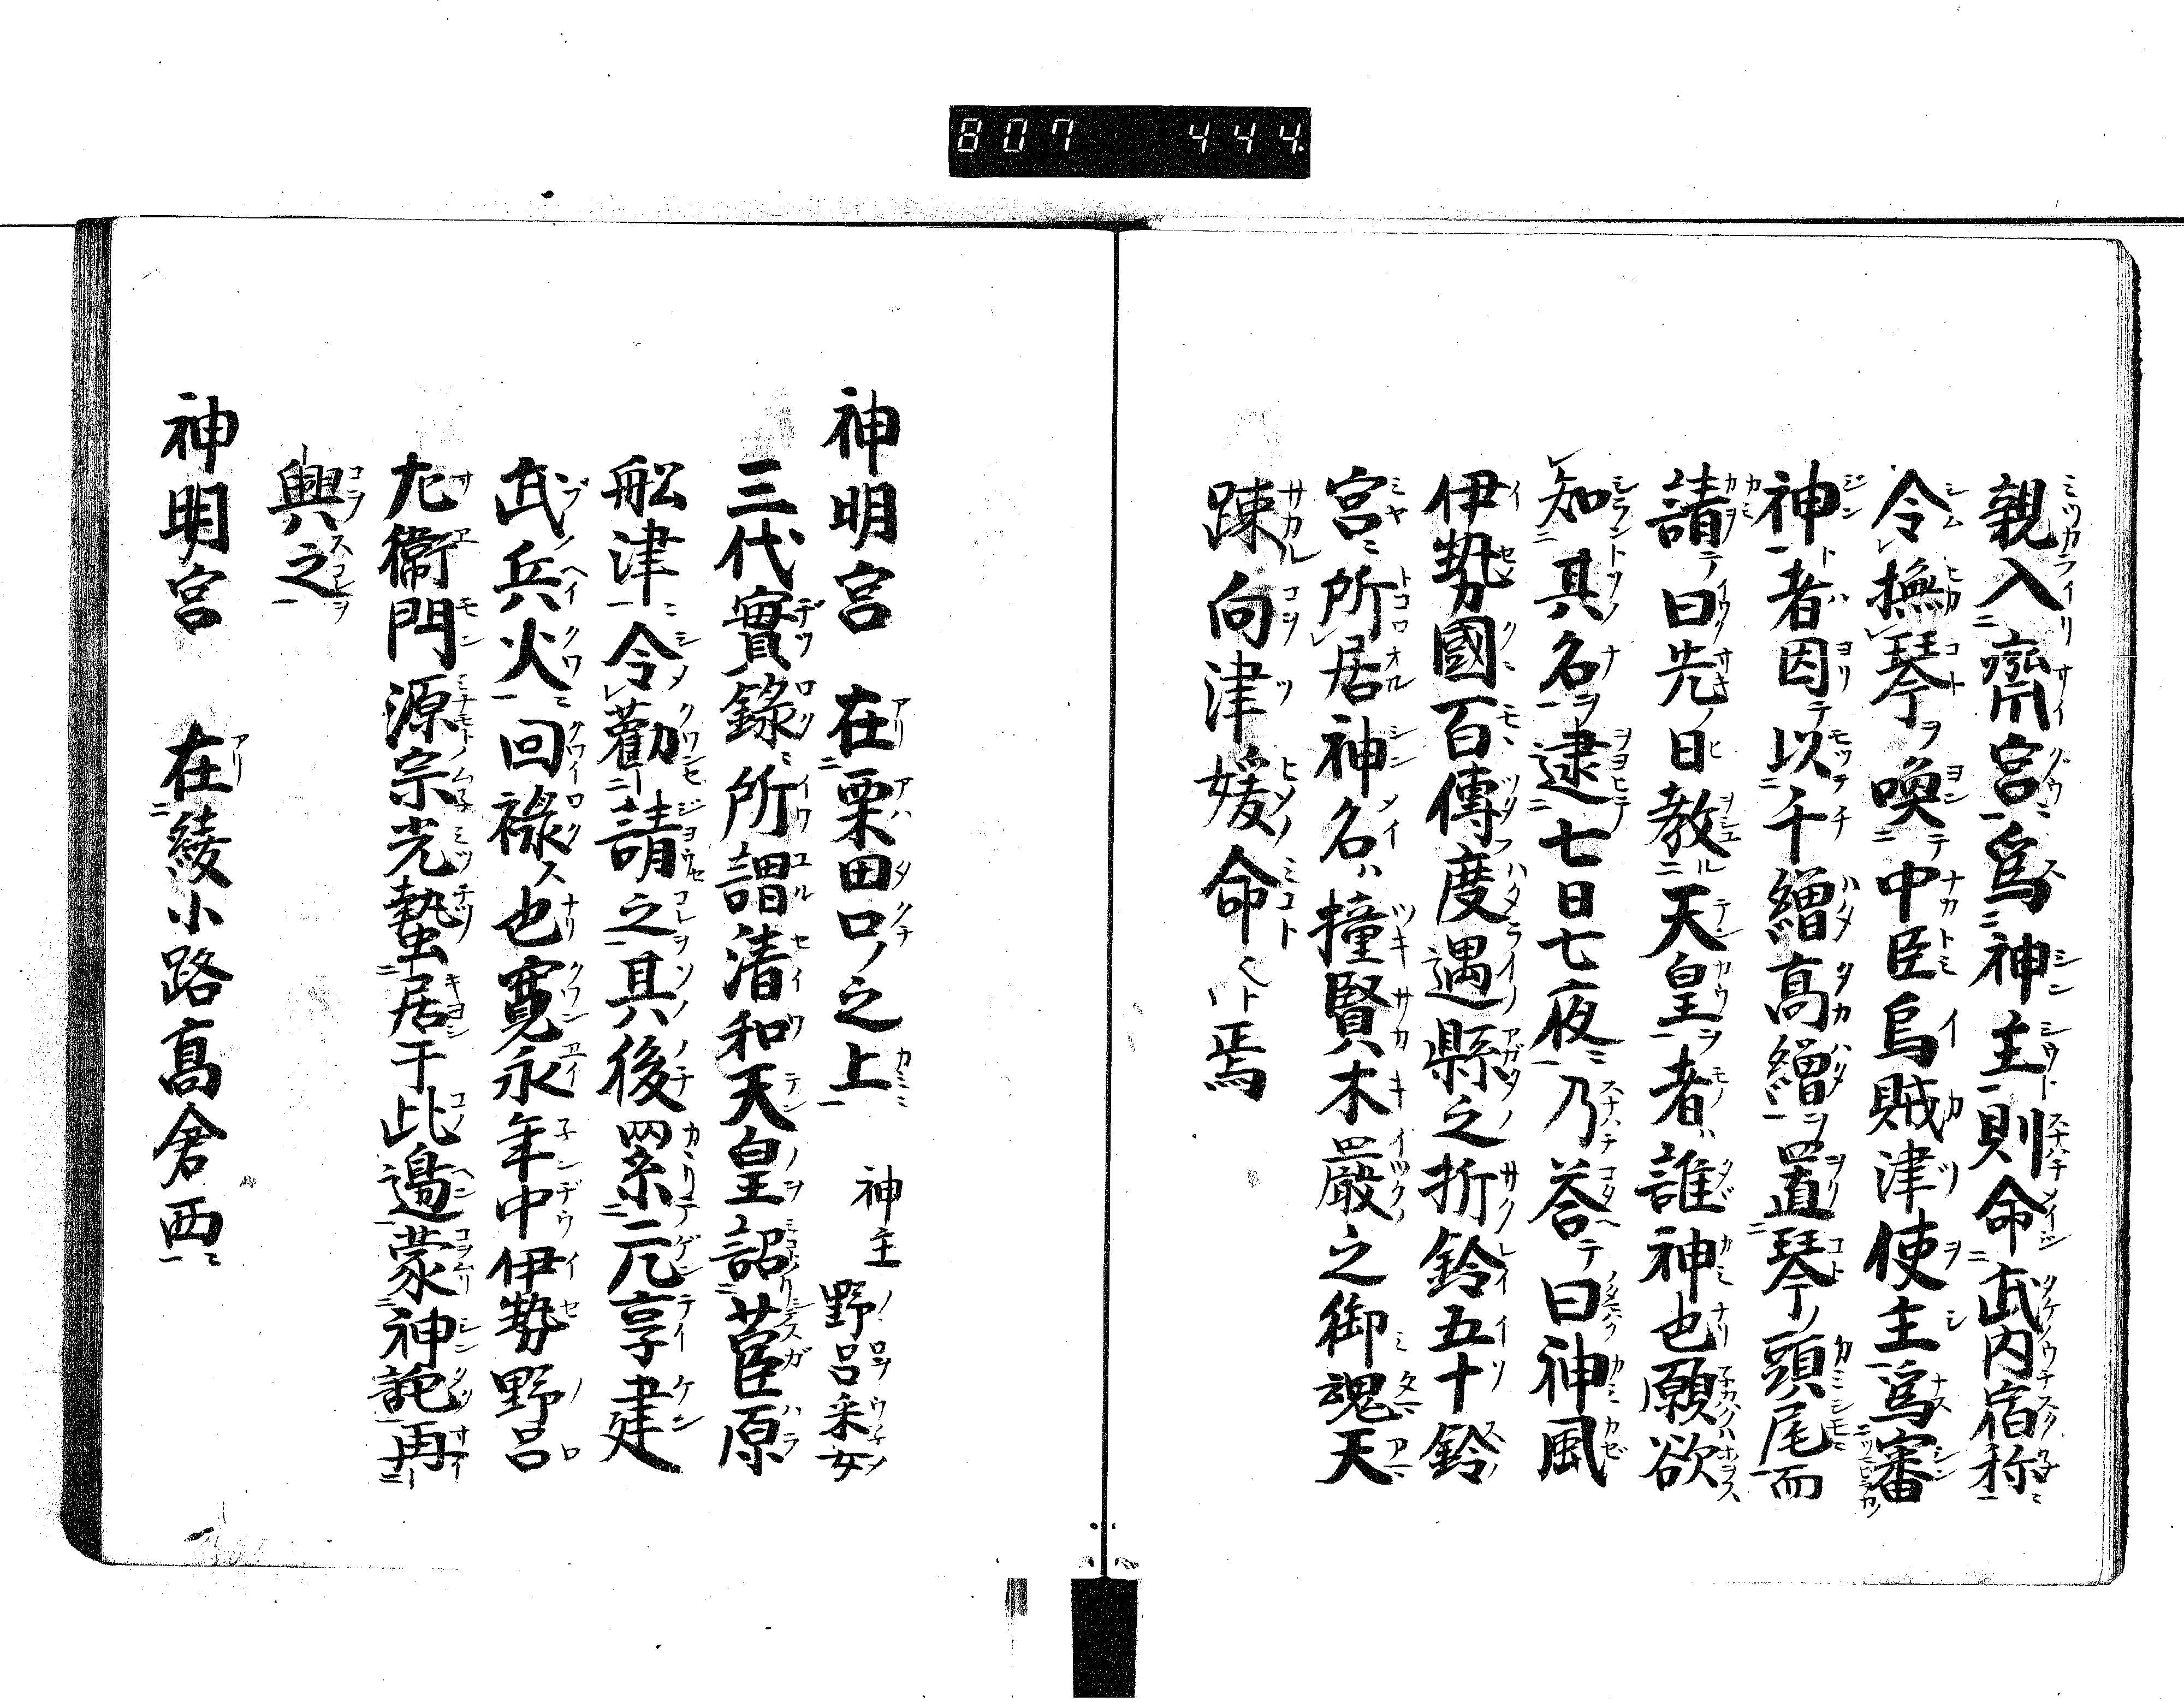 807 444
親入齋宮爲神主則命武内宿祢
令撫琴喚中臣烏賊津使主爲審
神者因以千繒高繒置琴頭尾而
請曰先日教天皇者誰神也願欲
知其名逮七日七夜乃答曰神風
伊勢國百傳度遇縣之折鈴五十鈴
宮所居神名撞賢木嚴之御魂天
疎向津媛命焉
神明宮 在粟田口之上 神主 野呂采女
三代實錄所謂清和天皇詔菅原
舩津令勸請之其後累元亨建
武兵火回祿也寛永年中伊勢野呂
左衞門源宗光蟄居于此邉蒙神託再
興之
神明宮 在綾小路高倉西